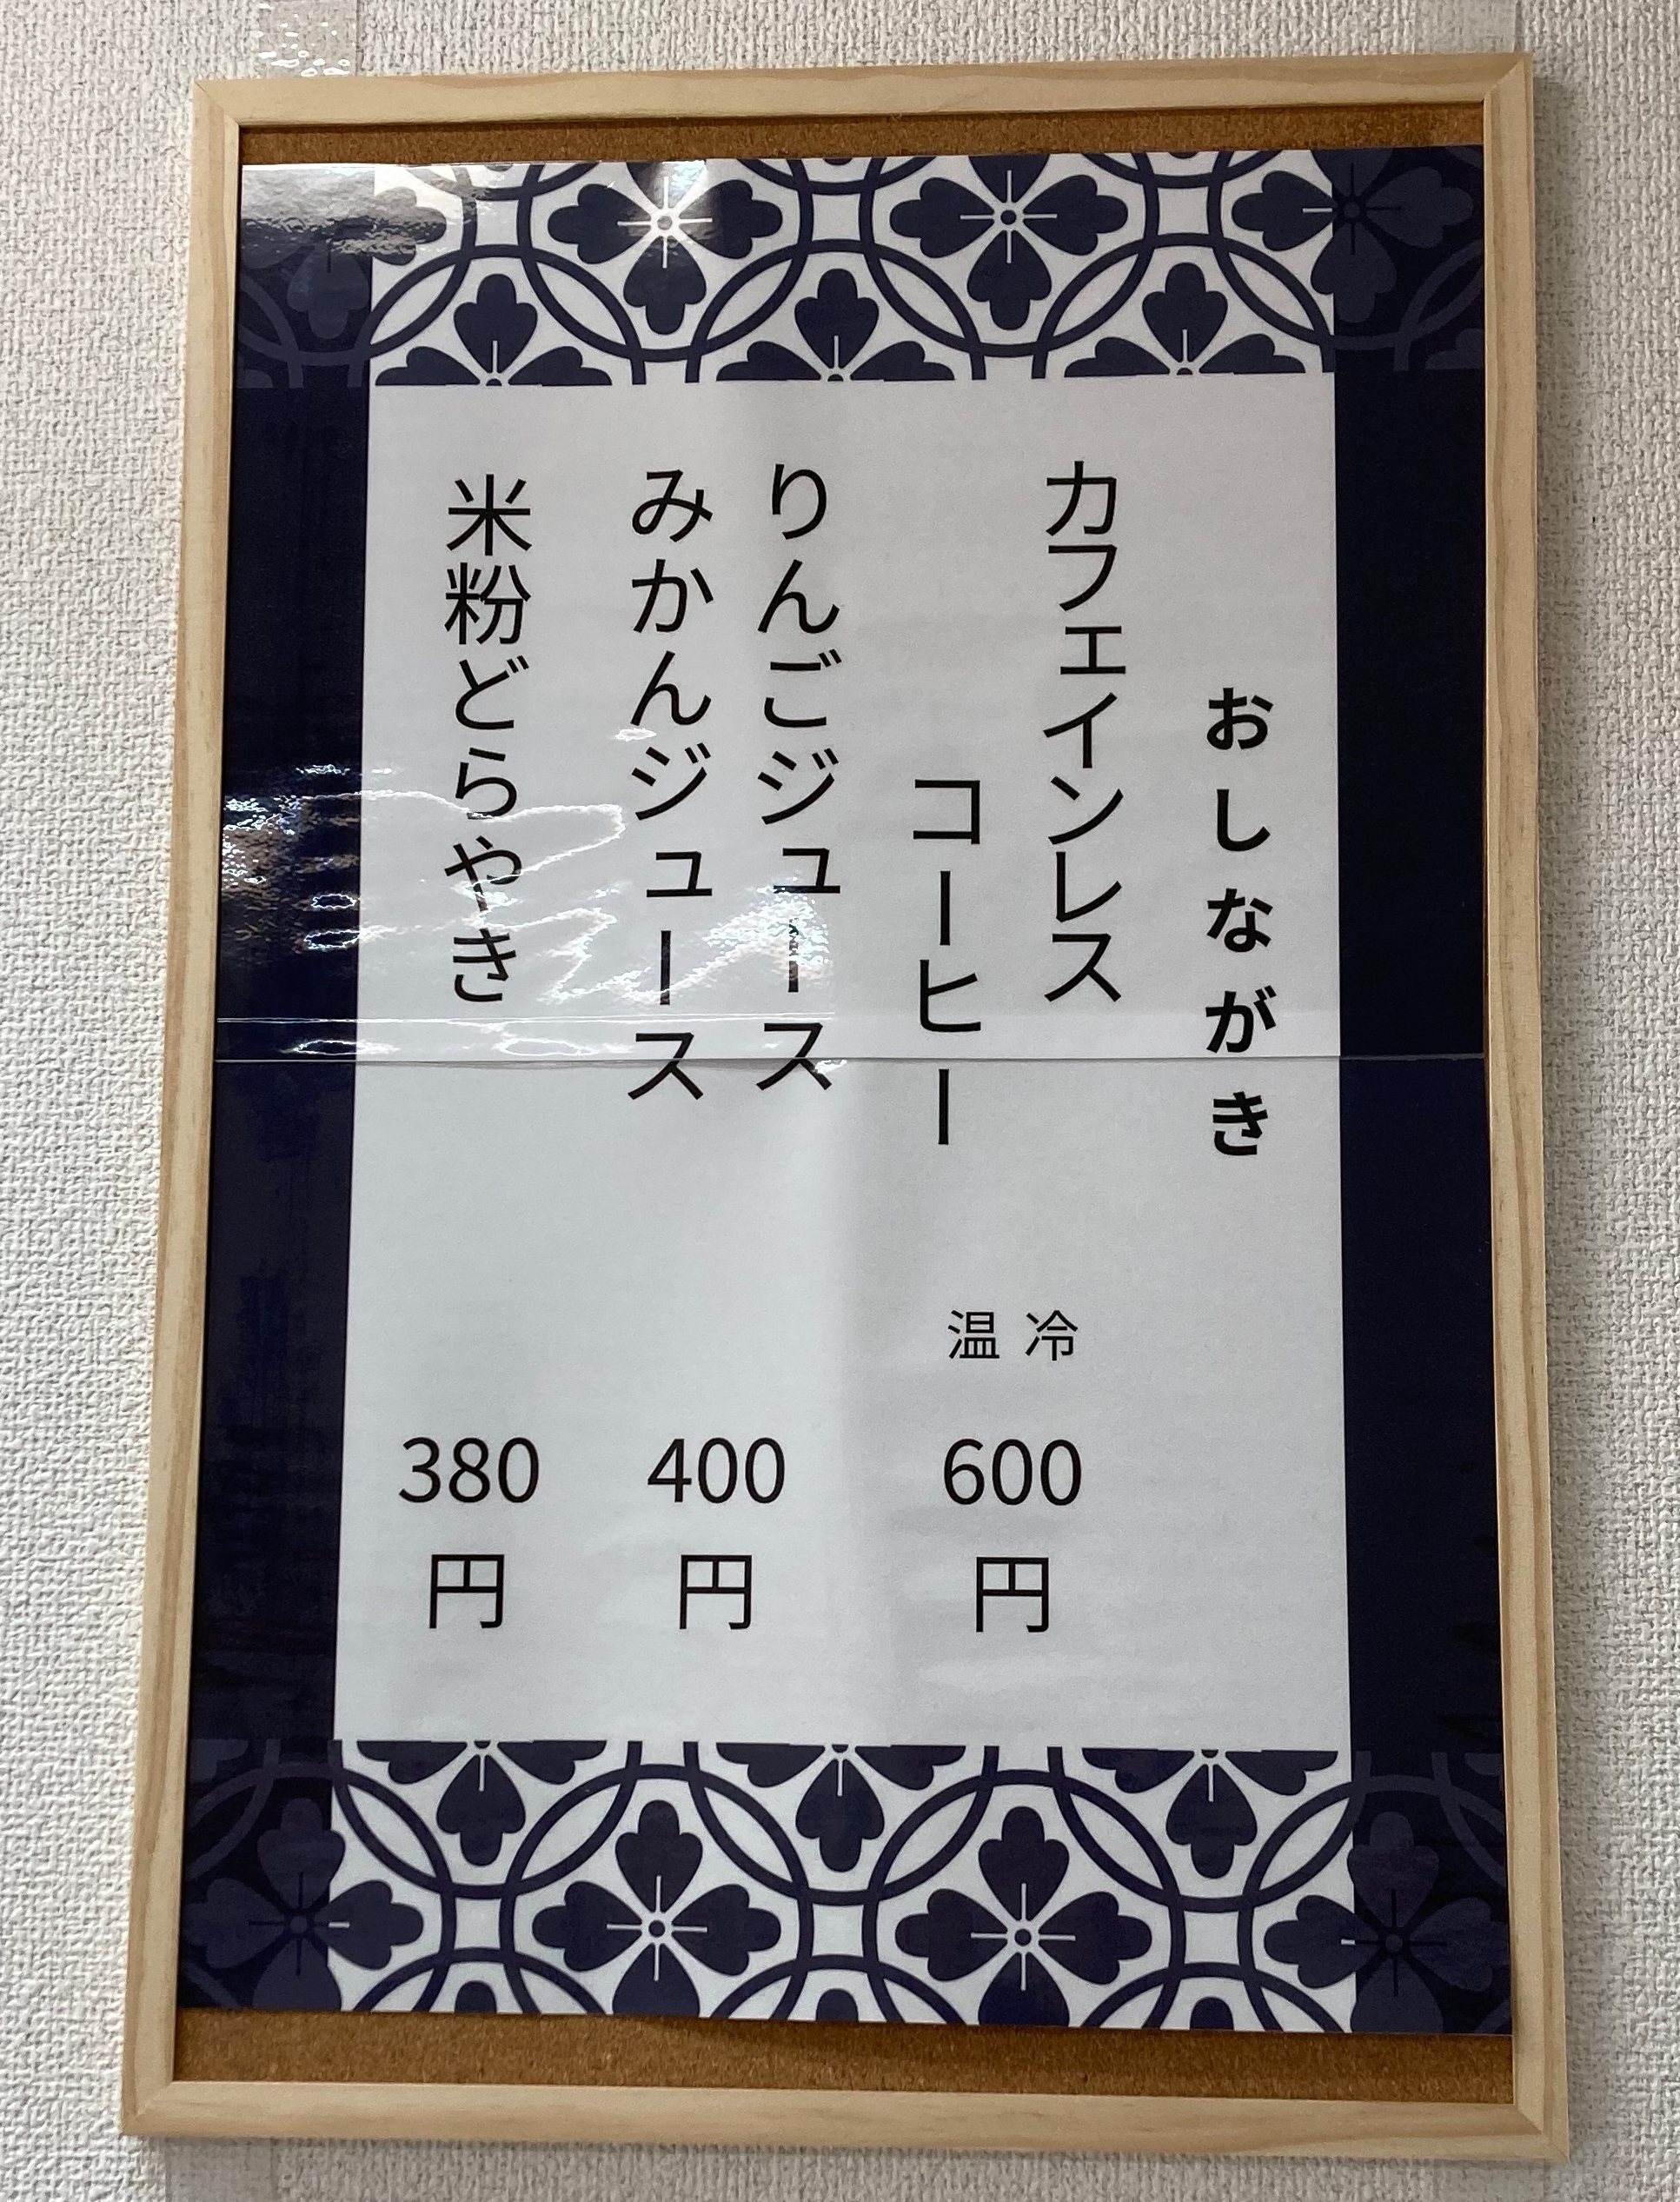 おしながき
カフェインレス
コーヒー
冷 温
600
円
りんごジュース
みかんジュース
400
円
米粉どらやき
380
円